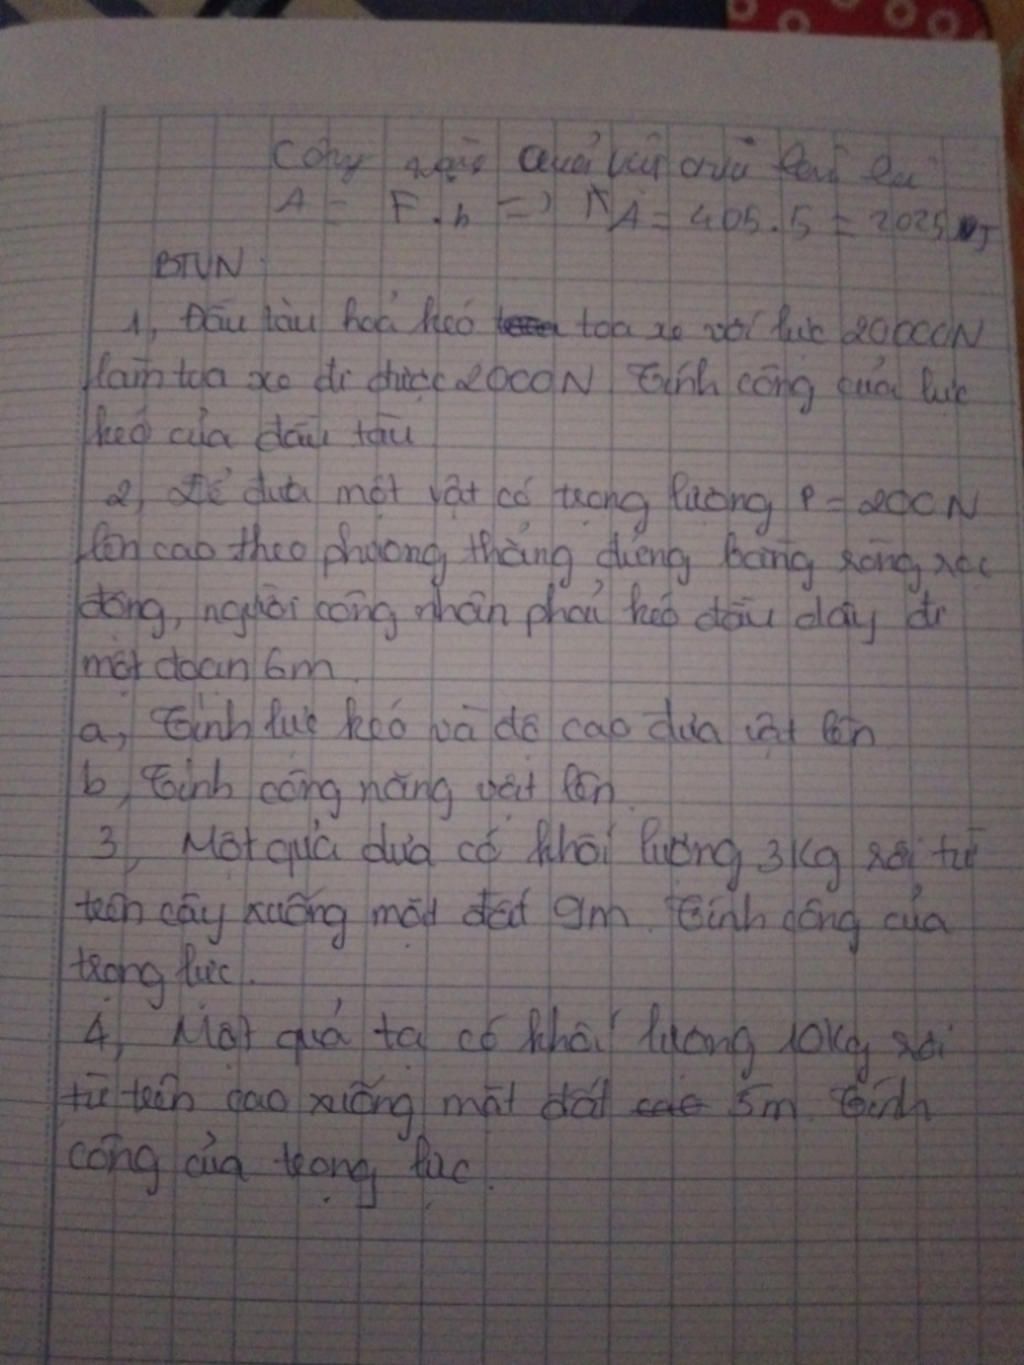 Công quả
A = F.h => A = 405.5 = 2025 J
BTVN
1, Đầu tàu hoả kéo toa xe với lực 20000N
làm toa xe đi được 2000N Tính công của lực
kéo của đầu tàu
2, Để đưa một vật có trọng lượng P = 200N
lên cao theo phương thẳng đứng bằng ròng rọc
động, người công nhân phải kéo đầu dây đi
một đoạn 6m
a, Tính lực kéo và độ cao đưa vật lên
b, Tính công nâng vật lên.
3, Một quả dừa có khối lượng 3Kg rơi từ
trên cây xuống mặt đất 9m. Tính công của
trọng lực.
4, Một quả tạ có khối lượng 10Kg rơi
từ trên cao xuống mặt đất 5m. Tính
công của trọng lực.